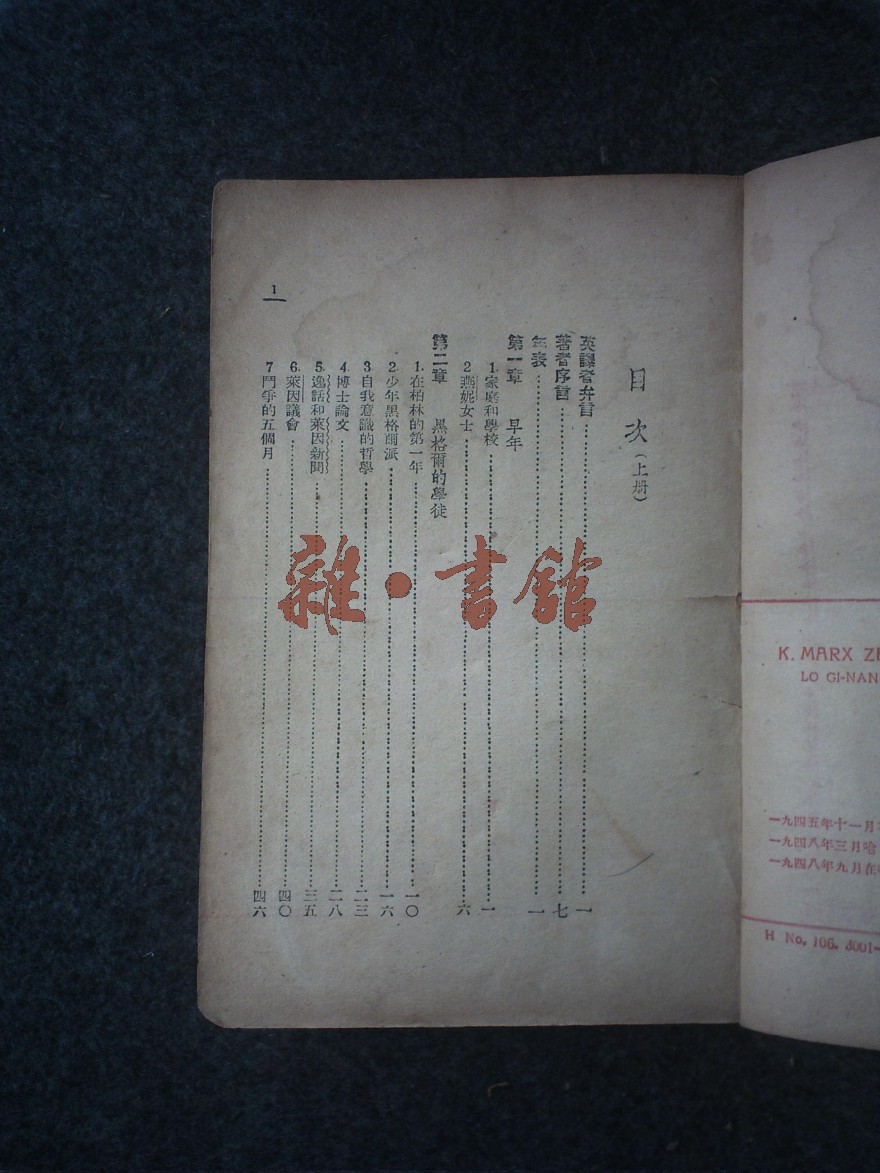 目次（上册）
英譯者弁言……一
著者序言……七
年表……一
第一章 早年
1.家庭和學校……一
2.燕妮女士……六
第二章 黑格爾的學徒
1.在柏林的第一年……一〇
2.少年黑格爾派……一六
3.自我意識的哲學……二三
4.博士論文……二八
5.逸話和萊因新聞……三五
6.萊因議會……四〇
7鬥爭的五個月……四六
1
雜·書館
K. MARX
LO GI-NAN
一九四五年十一月
一九四八年三月哈
一九四八年九月在
H No. 106. 3001-